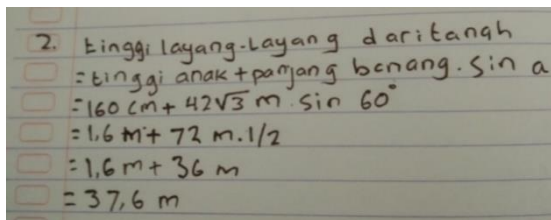 2. tinggi layang-Layang daritanah
= tinggi anak + panjang benang. Sin a
= 160 cm + 42√3 m . sin 60°
= 1,6 m + 72 m . 1/2
= 1,6 m + 36 m
= 37,6 m